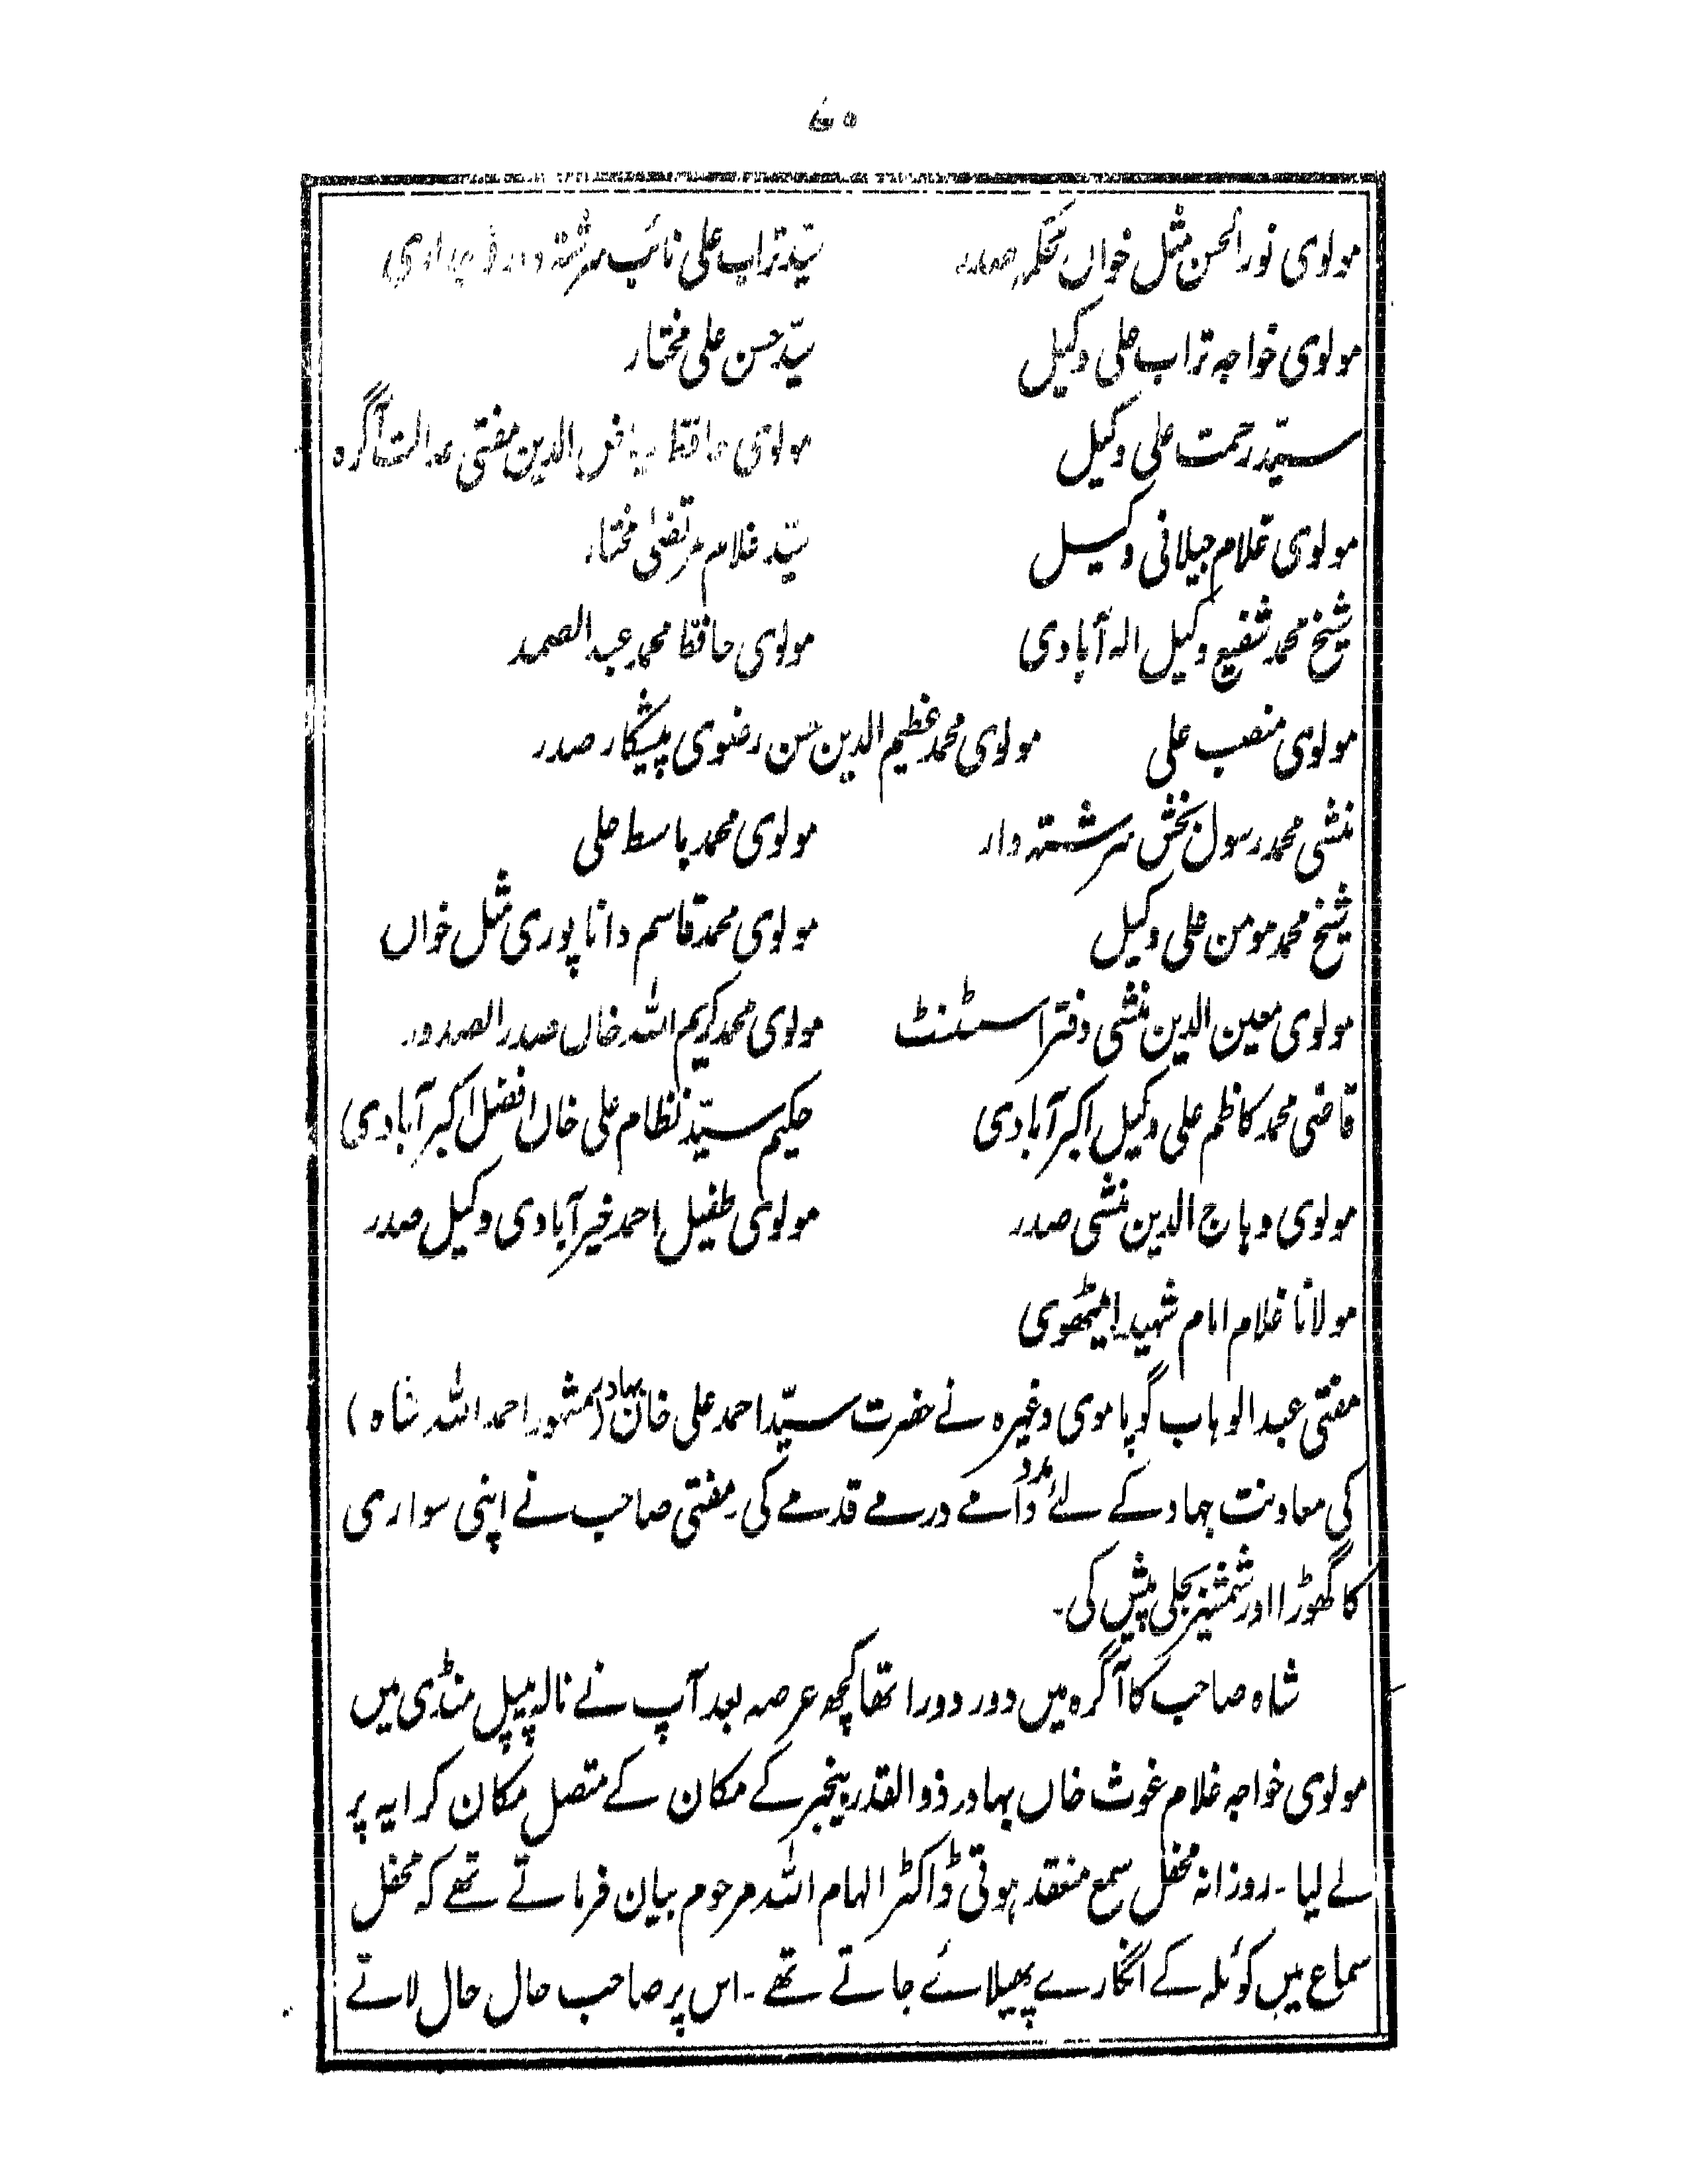 مولوی نورالحسن مثل خواں محکمہ صدر سیّد تراب علی نائب سرشتہ دار
مولوی خواجہ تراب علی وکیل سیّد حسن علی مختار
سیّد رحمت علی وکیل مولوی حافظ ریاض الدین مفتی عدالت آگرہ
مولوی غلام جیلانی وکیل سیّد غلام مرتضیٰ مختار
شیخ محمد شفیع وکیل الہ آبادی مولوی حافظ محمد عبدالصمد
مولوی منصب علی مولوی محمد عظیم الدین حسن رضوی پیشکار صدر
منشی محمد رسول بخش سرشتہ دار مولوی محمد باسط علی
شیخ محمد مومن علی وکیل مولوی محمد قاسم داناپوری مثل خواں
مولوی معین الدین منشی دفتر اسسٹنٹ مولوی محمد کریم اللہ خاں صدرالصدور
قاضی محمد کاظم علی وکیل اکبرآبادی حکیم سیّد نظام علی خاں افضل اکبرآبادی
مولوی وہاج الدین منشی صدر مولوی طفیل احمد خیرآبادی وکیل صدر
مولانا غلام امام شہید امیٹھوی
مفتی عبدالوہاب گوپاموی وغیرہ نے حضرت سیّد احمد علی خان بہادر (مشہور احمد اللہ شاہ)
کی معاونت جہاد کے لئے مدد دامے درمے قدمے کی۔ مفتی صاحب نے اپنی سواری
کا گھوڑا اور شمشیر بجلی پیش کی۔
شاہ صاحب کا آگرہ میں دور دورا تھا کچھ عرصہ بعد آپ نے نالہ پیپل منڈی میں
مولوی خواجہ غلام غوث خاں بہادر ذوالقدر بیخبر کے مکان کے متصل مکان کرایہ پر
لے لیا۔ روزانہ محفل سمع منعقد ہوتی ڈاکٹر الہام اللہ مرحوم بیان فرماتے تھے کہ محفل
سماع میں کوئلہ کے انگارے پھیلائے جاتے تھے۔ اس پر صاحب حال حال لاتے